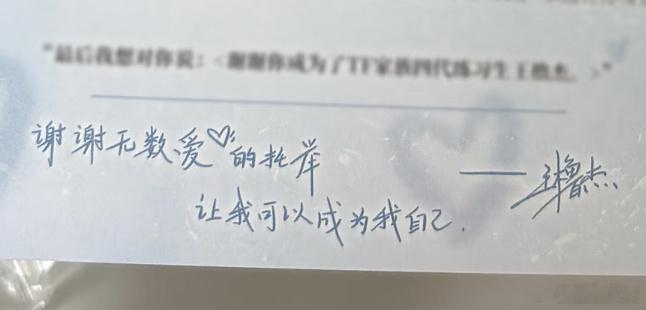 “最后我想对你说：<谢谢你成为了TF家族四代练习生王橹杰。>”
谢谢无数爱♡的托举
——王橹杰
让我可以成为我自己.